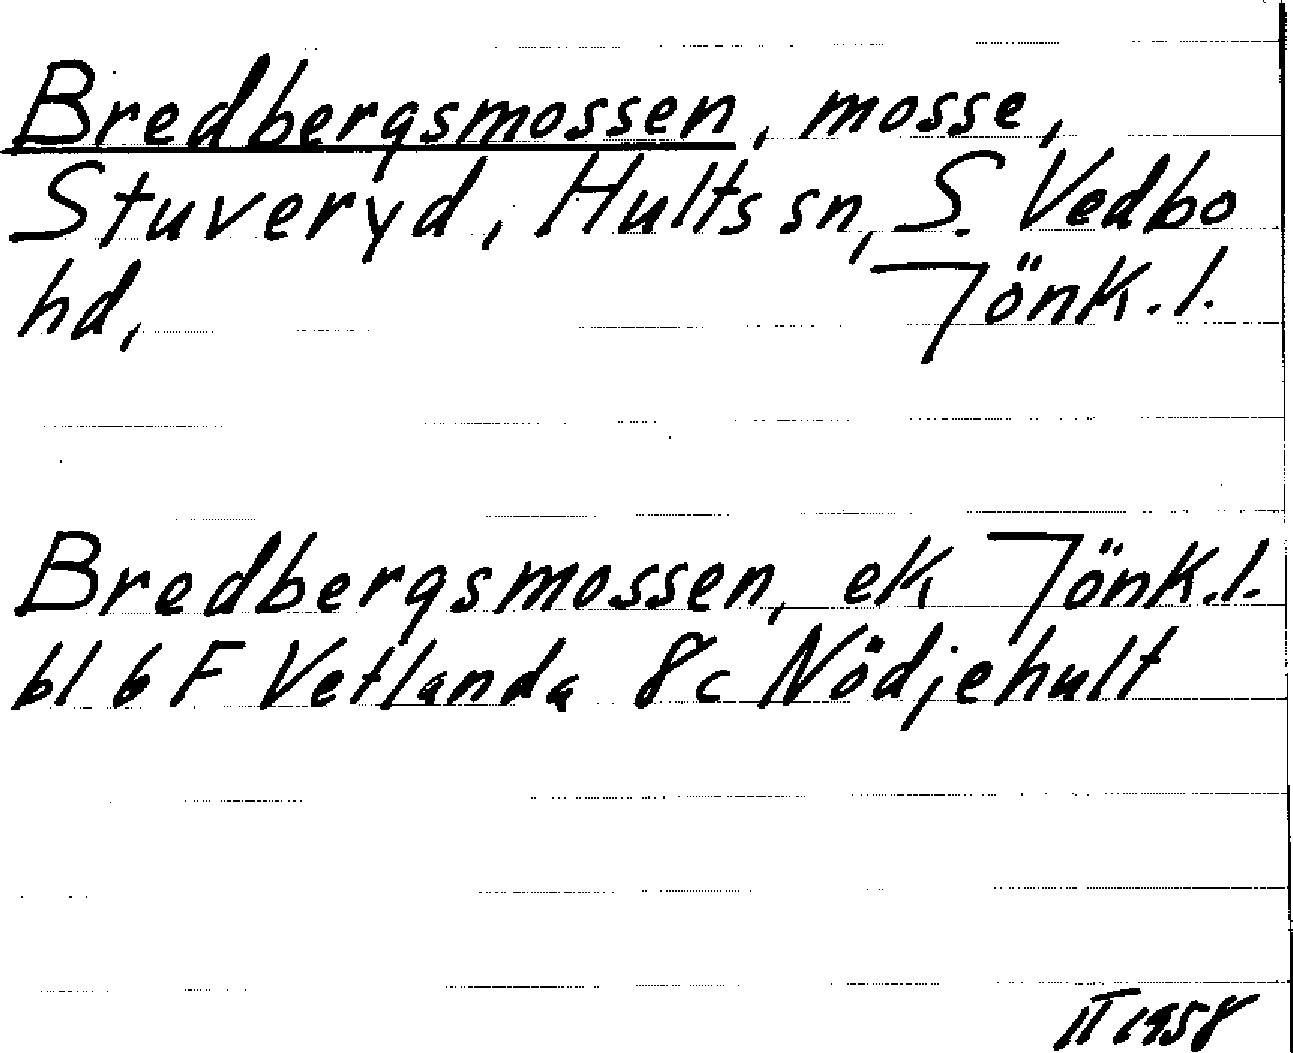 Bredbergsmossen, mosse,
Stuveryd, Hults sn, S. Vedbo
hd, Jönk. l.
Bredbergsmossen, ek Jönk. l.
bl 6 F Vetlanda 8c Nödjehult
IT 1958